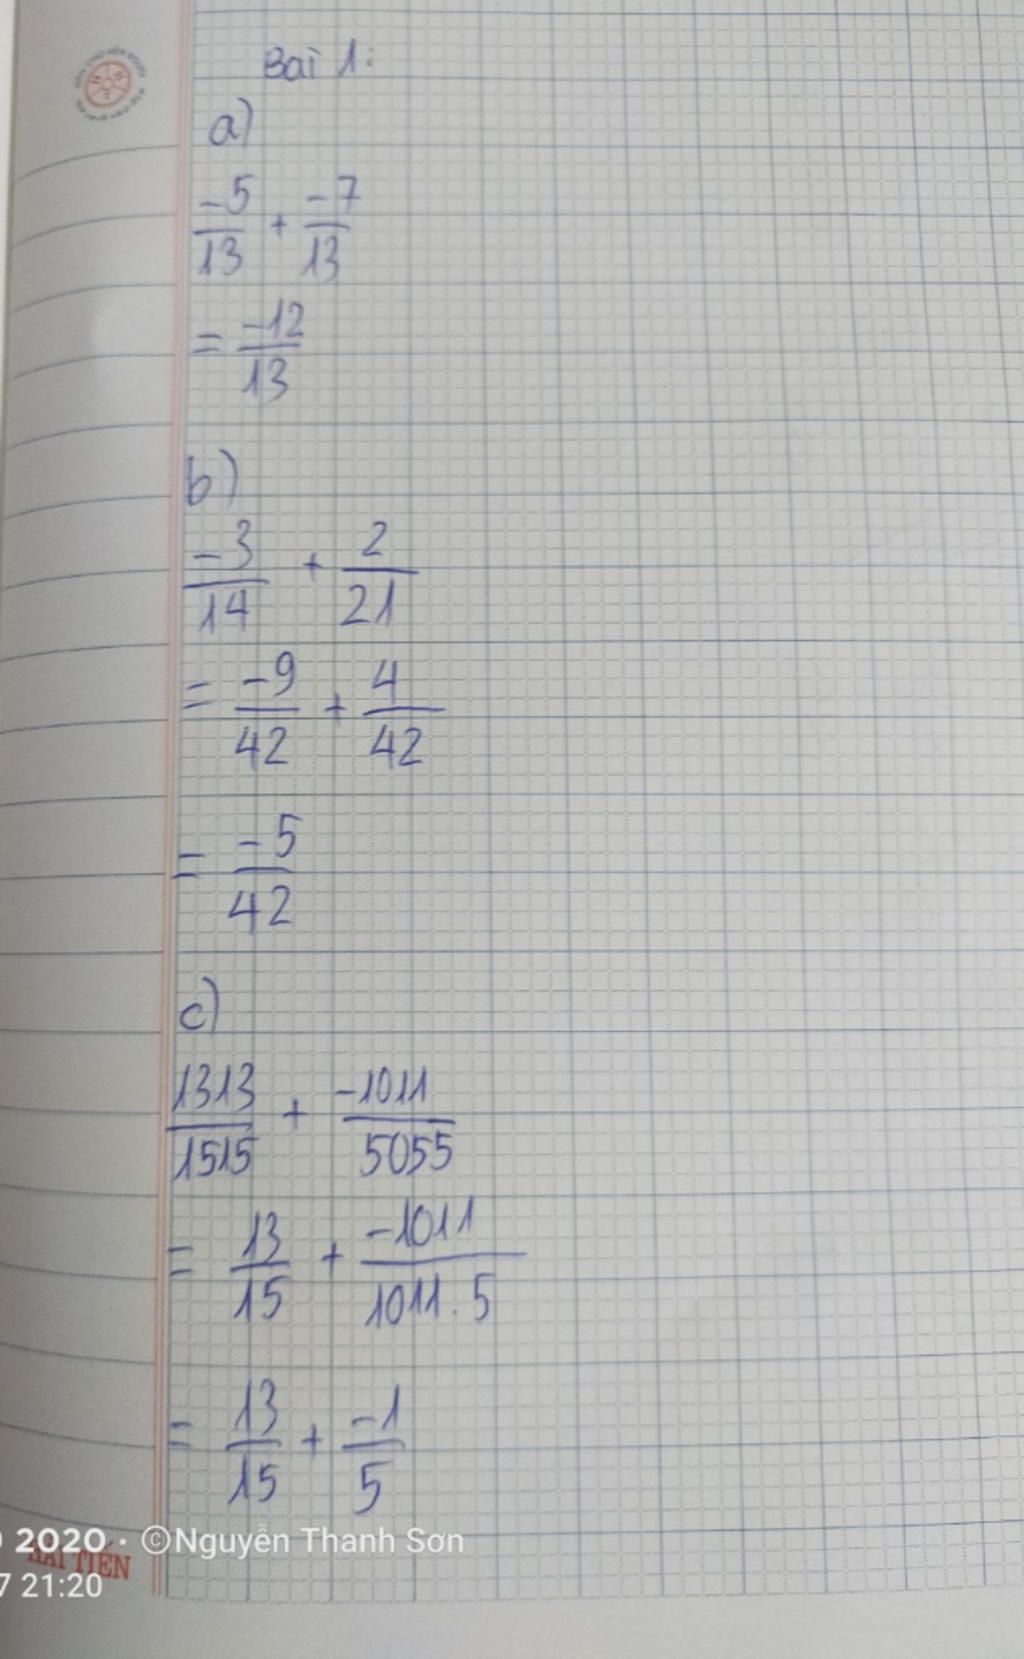 Bài 1:
a)
-5/13 + -7/13
= -12/13
b)
-3/14 + 2/21
= -9/42 + 4/42
= -5/42
c)
1313/1515 + -1011/5055
= 13/15 + -1011/1011.5
= 13/15 + -1/5
2020 · ©Nguyễn Thanh Sơn
HẢI TIẾN
7 21:20